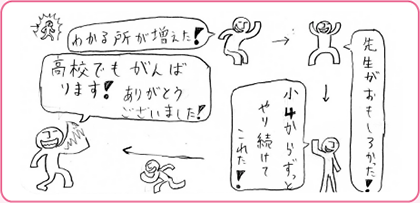 わかる所が増えた!
先生がおもしろかった!
小4からずっと
やり続けて
これた!
高校でも がんば
ります! ありがとう
ございました!